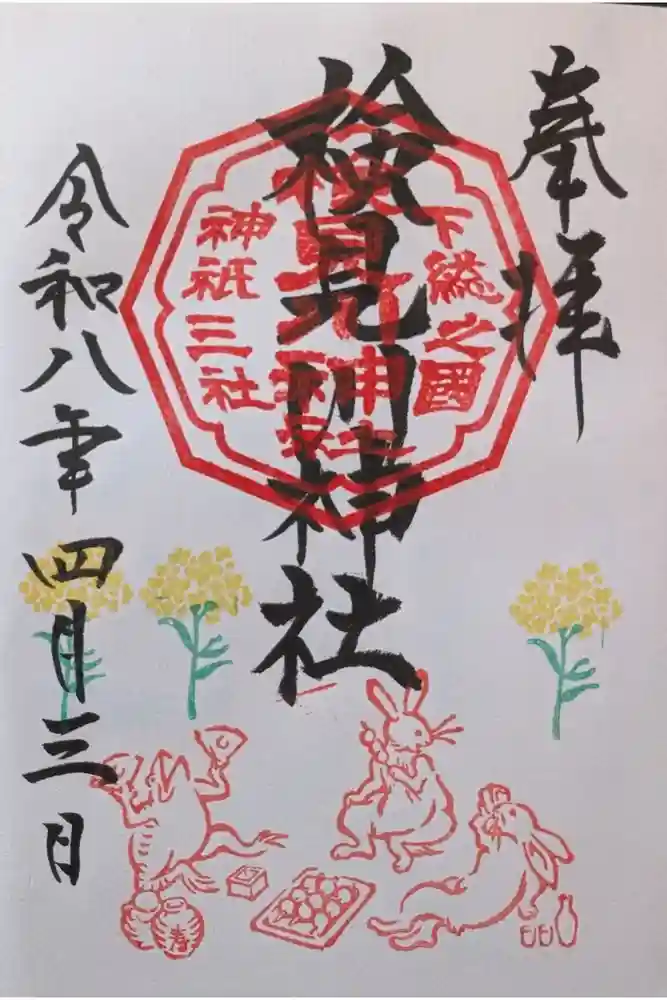 奉拝
下総之國
検見川神社
検見川神社
神祇三社
令和八年四月三日
春